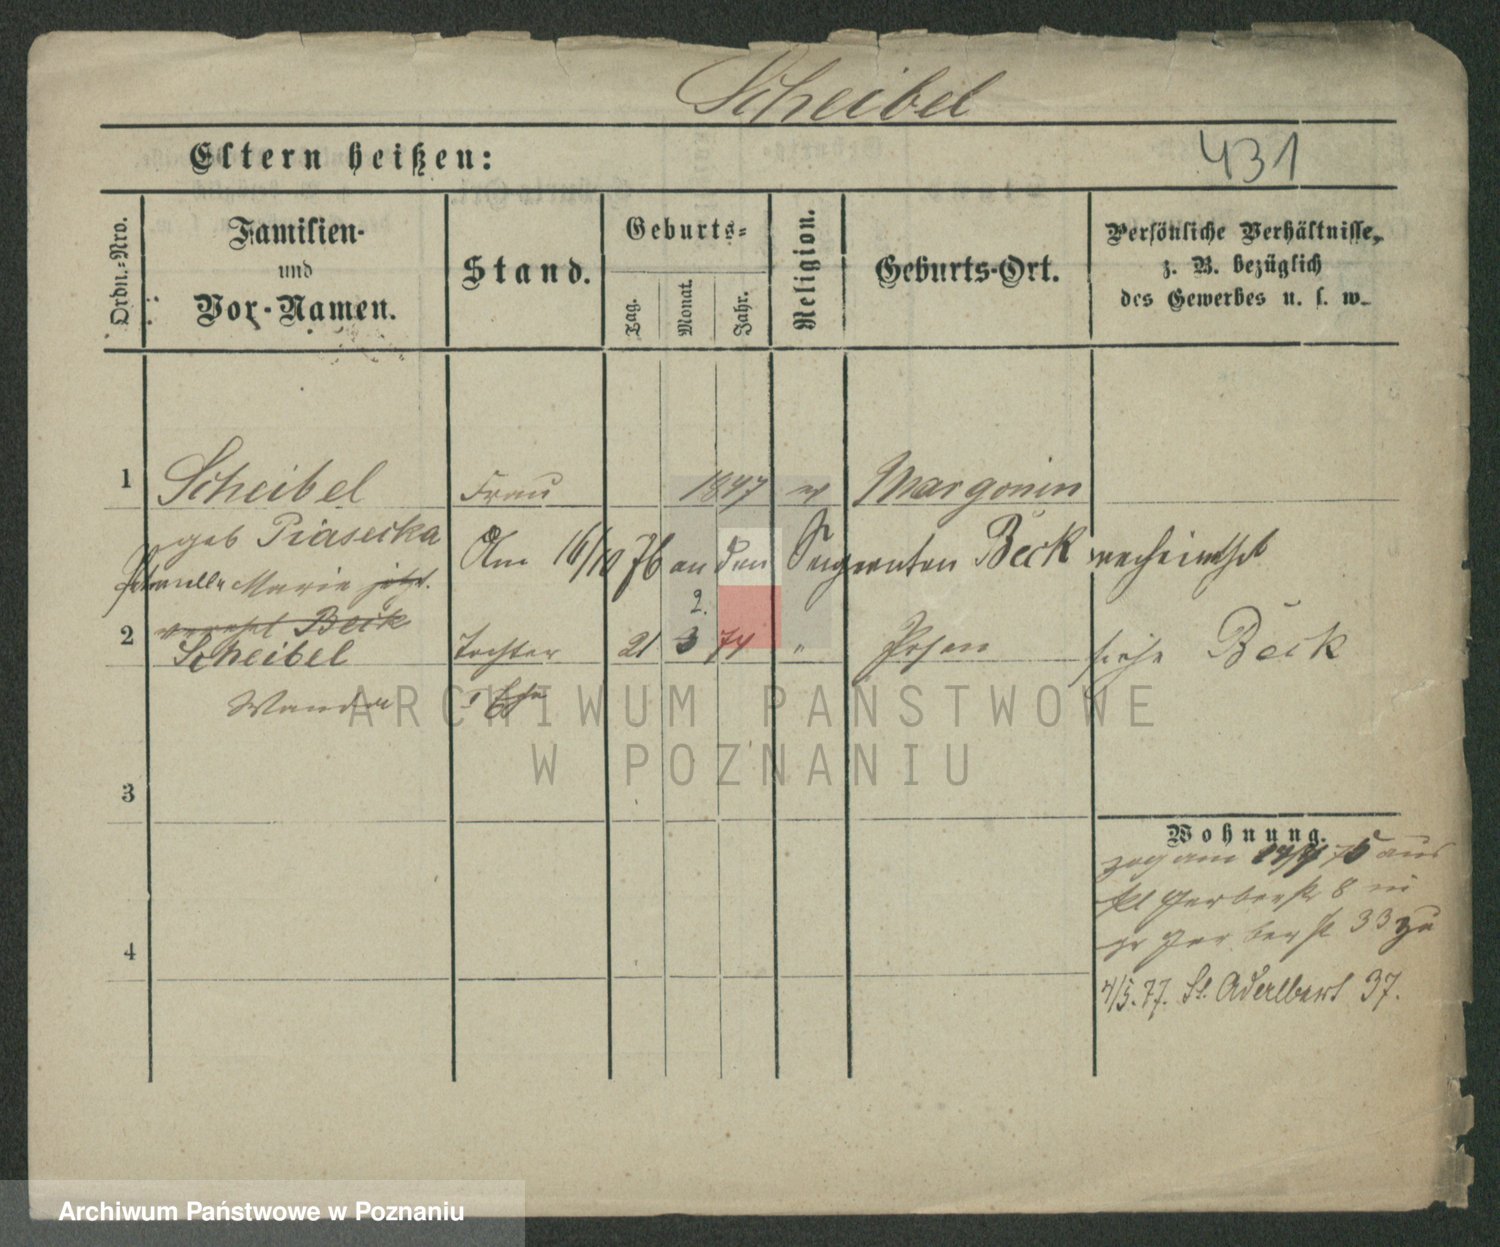 Scheibel
Eltern heißen:
431
Ordn.-Nro.
Familien-
und
Vor-Namen.
Stand.
Geburts-
Tag.
Monat.
Jahr.
Religion.
Geburts-Ort.
Persönliche Verhältnisse,
z. B. bezüglich
des Gewerbes u. s. w.
1 Scheibel Frau 1847 Margonin
geb Piasecka
Am 16/10 76 an den Sergeanten Beck verheirathet
Marie jetzt.
verehl Beck
2 Scheibel Tochter 21 2. 3 74 " Posen siehe Beck
Wanda
3
4
Wohnung.
zog am 76 aus
kl Gerberstr 8 in
gr Gerberst 33 zu
4/5. 77. St. Adalbert 37.
ARCHIWUM PAŃSTWOWE
W POZNANIU
Archiwum Państwowe w Poznaniu